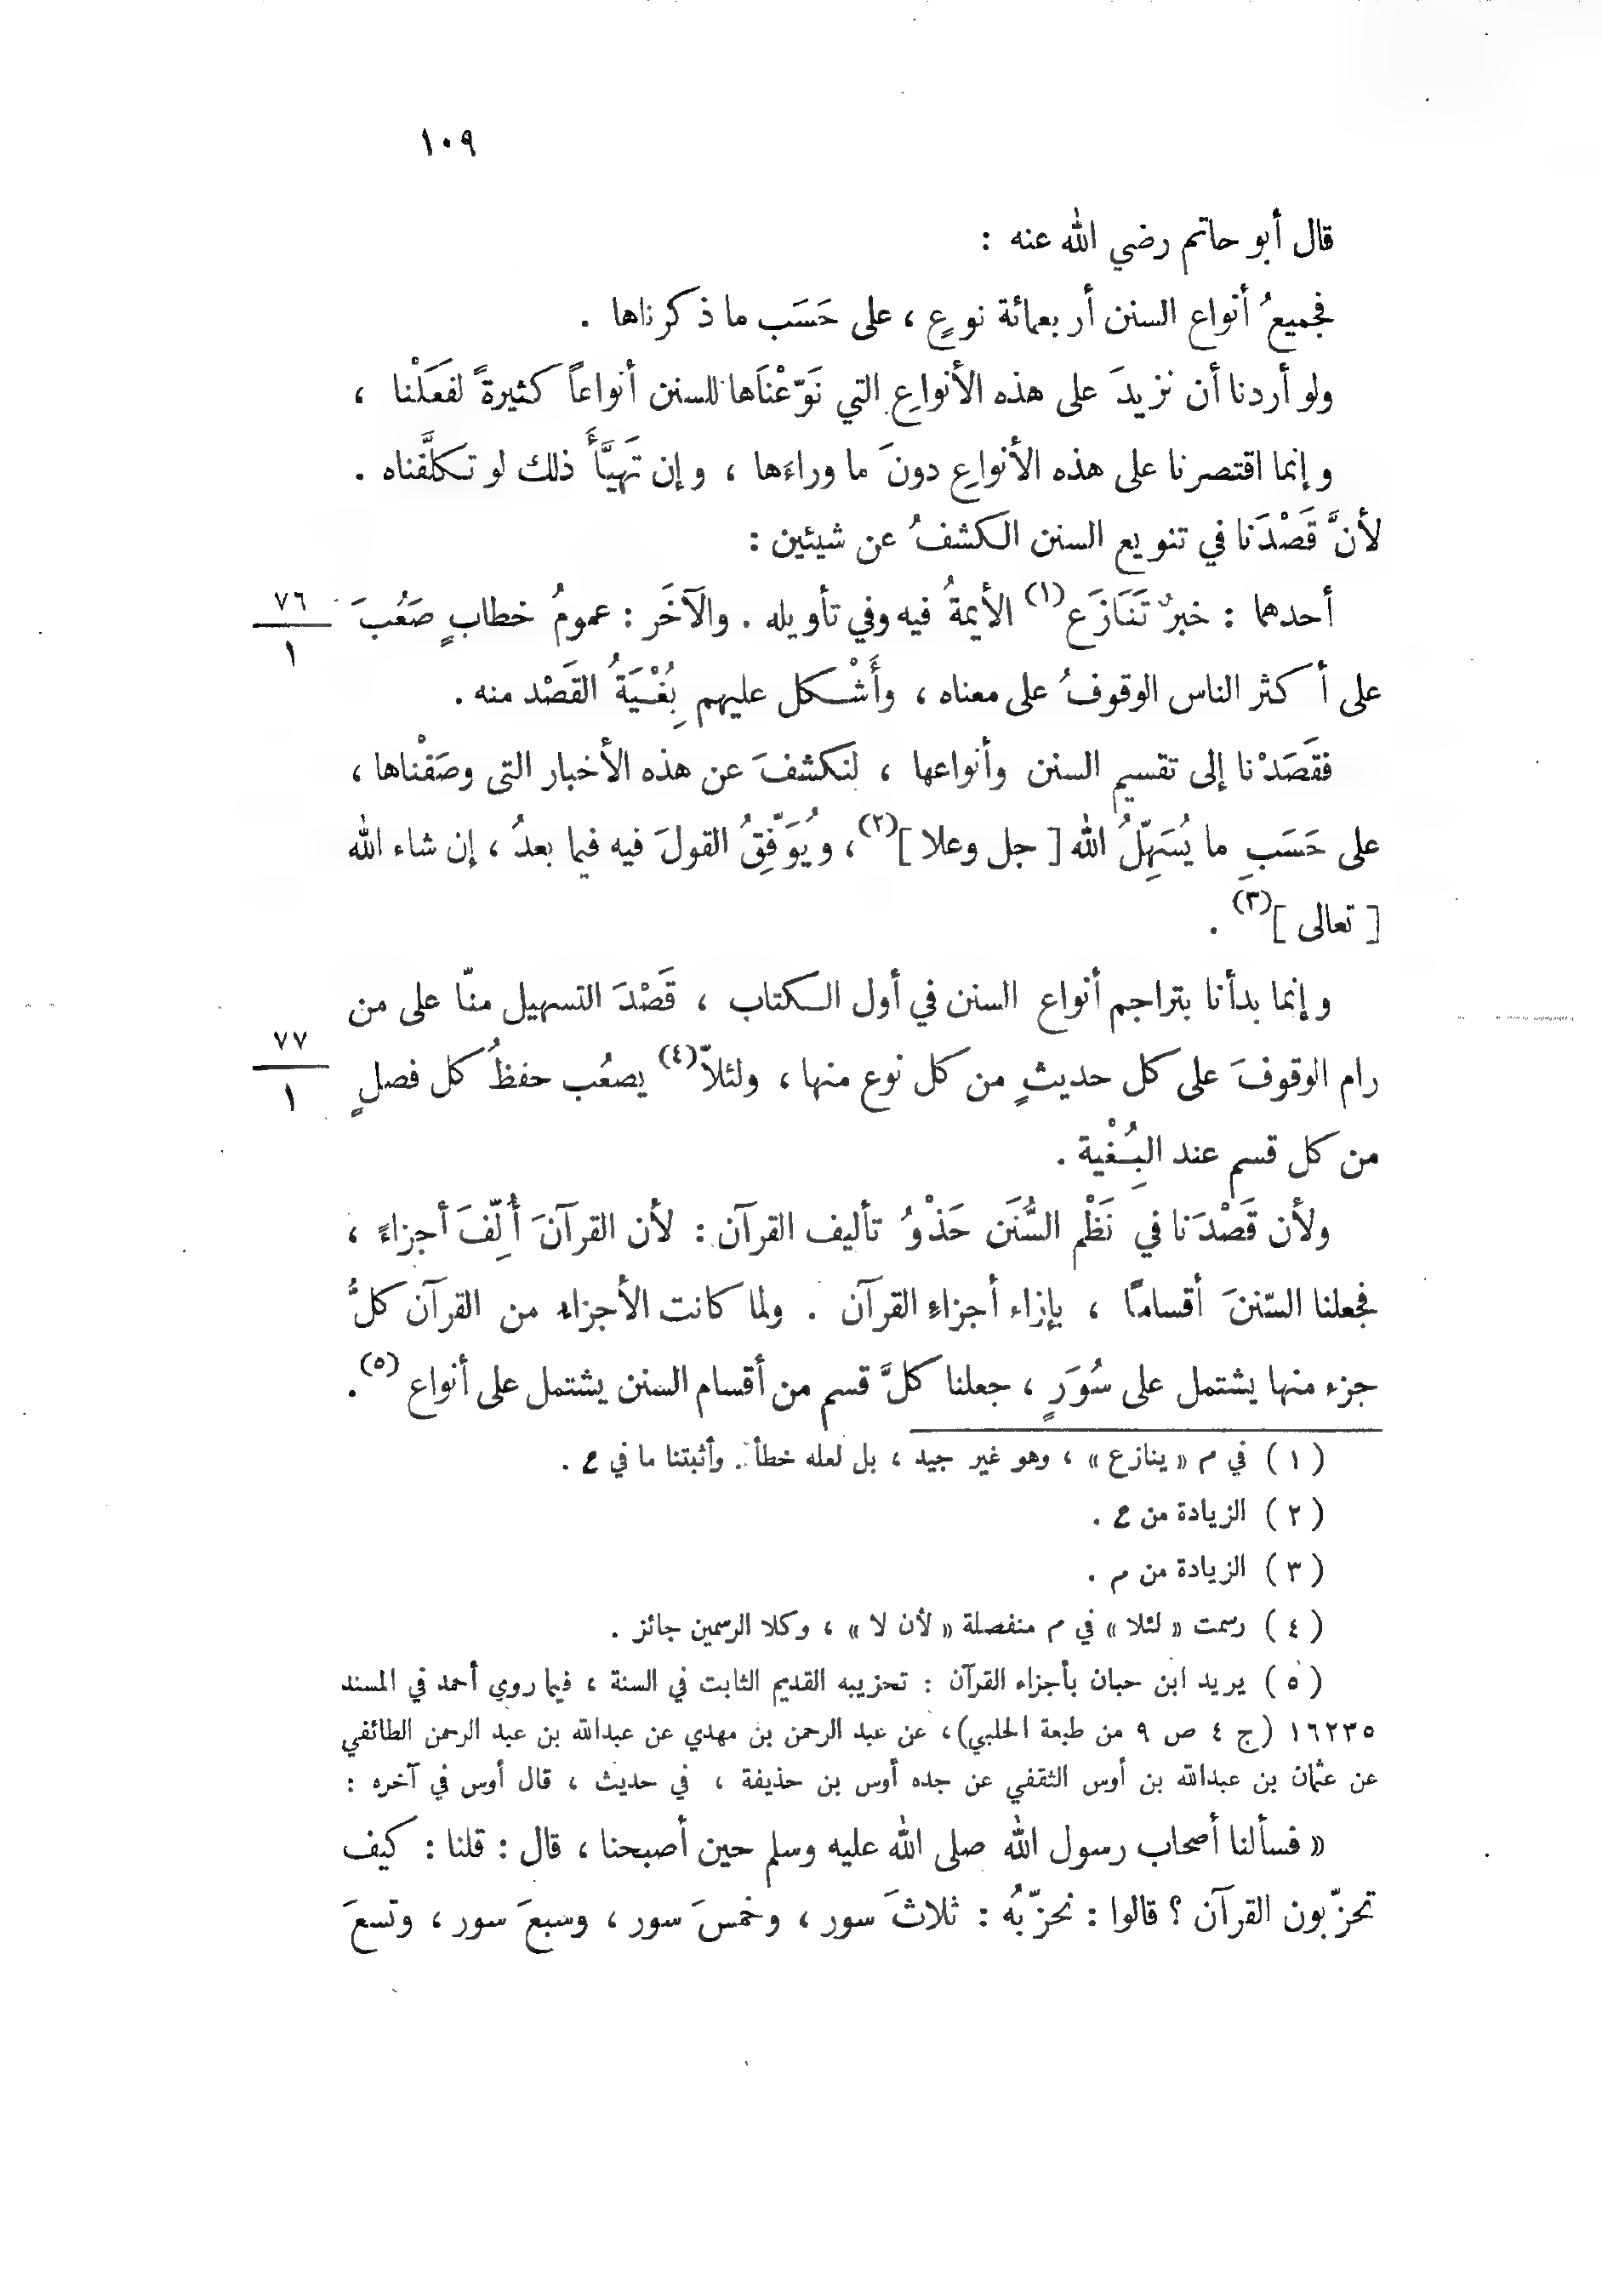 ١٠٩
قال أبو حاتم رضي الله عنه :
فجميعُ أنواع السنن أربعمائة نوعٍ ، على حَسَب ما ذكرناها .
ولو أردنا أن نزيدَ على هذه الأنواعِ التي نَوّعْنَاها للسنن أنواعاً كثيرةً لفعَلْنا ،
وإنما اقتصرنا على هذه الأنواعِ دونَ ما وراءَها ، وإن تَهيَّأَ ذلك لو تكلَّفناه .
لأنَّ قَصْدَنا في تنويع السنن الكشفُ عن شيئين :
أحدهما : خبرٌ تَنَازَع(١) الأيمةُ فيه وفي تأويله . والآخَر : عمومُ خطابٍ صَعُبَ
٧٦
١
على أكثر الناس الوقوفُ على معناه ، وأَشْكل عليهم بِغُْيَةُ القَصْد منه .
فقَصَدْنا إلى تقسيم السنن وأنواعها ، لنَكشفَ عن هذه الأخبار التى وصَفْناها ،
على حَسَبِ ما يُسَهِّلُ الله [ جل وعلا ](٢) ، ويُوَفِّقُ القولَ فيه فيما بعدُ ، إن شاء الله
[ تعالى ](٣) .
وإنما بدأنا بتراجم أنواع السنن في أول الكتاب ، قَصْدَ التسهيل منّا على من
٧٧
١
رام الوقوفَ على كل حديثٍ من كل نوع منها ، ولئلاّ(٤) يصعُب حفظُ كل فصلٍ
من كل قسم عند البِغُْية .
ولأن قَصْدَنا في نَظْم السُّنَن حَذْوُ تأليف القرآن : لأن القرآنَ أُلِّفَ أجزاءً ،
فجعلنا السّننَ أقسامًا ، بإزاء أجزاءِ القرآن . ولما كانت الأجزاء من القرآن كلُّ
جزء منها يشتمل على سُوَرٍ ، جعلنا كلَّ قسم من أقسام السنن يشتمل على أنواع (٥) .
( ١ ) في م « ينازع » ، وهو غير جيد ، بل لعله خطأ . وأثبتنا ما في ع .
( ٢ ) الزيادة من ع .
( ٣ ) الزيادة من م .
( ٤ ) رسمت « لئلا » في م منفصلة « لأن لا » ، وكلا الرسمين جائز .
( ٥ ) يريد ابن حبان بأجزاء القرآن : تحزيبه القديم الثابت في السنة ، فيما روي أحمد في المسند
١٦٢٣٥ (ج ٤ ص ٩ من طبعة الحلبي) ، عن عبد الرحمن بن مهدي عن عبدالله بن عبد الرحمن الطائفي
عن عثمان بن عبدالله بن أوس الثقفي عن جده أوس بن حذيفة ، في حديث ، قال أوس في آخره :
« فسألنا أصحاب رسول الله صلى الله عليه وسلم حين أصبحنا ، قال : قلنا : كيف
تحزّبون القرآن ؟ قالوا : نحزّبُه : ثلاثَ سور ، وخمسَ سور ، وسبعَ سور ، وتسعَ